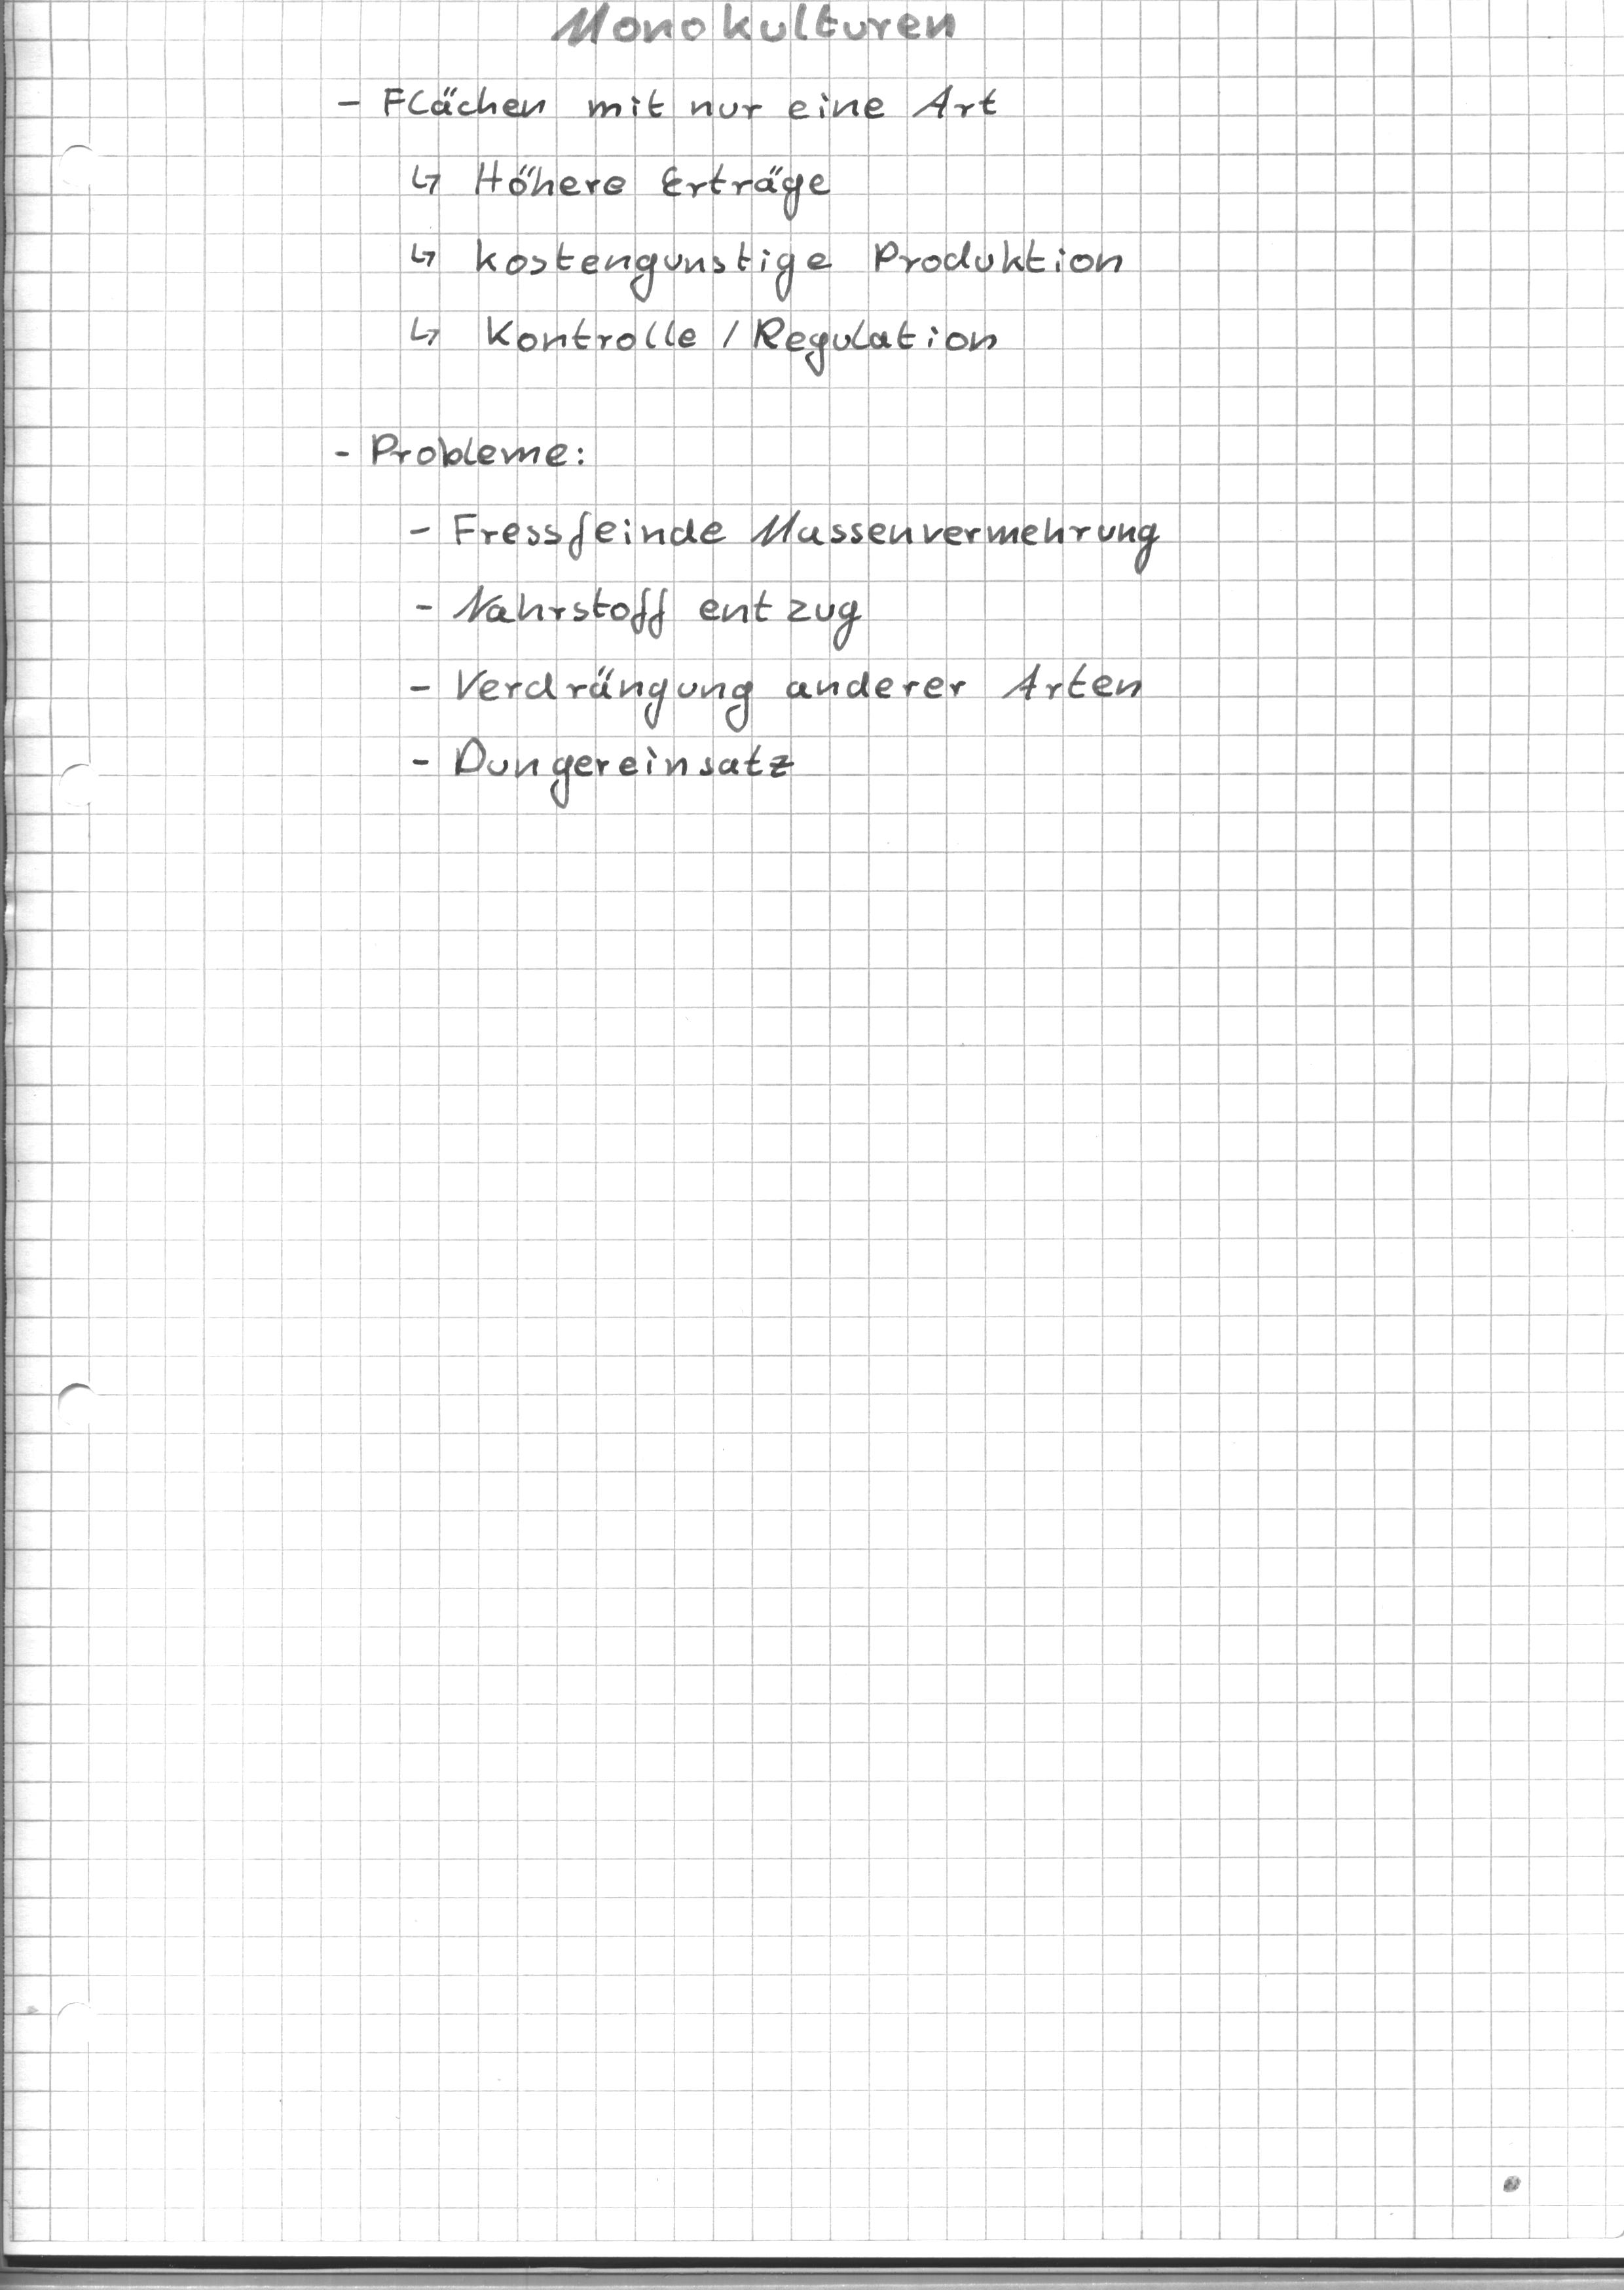 Monokulturen
- Flächen mit nur eine Art
↳ Höhere Erträge
↳ kostengunstige Produktion
↳ Kontrolle / Regulation
- Probleme:
- Fressfeinde Massenvermehrung
- Nahrstoff entzug
- Verdrängung anderer Arten
- Dungereinsatz